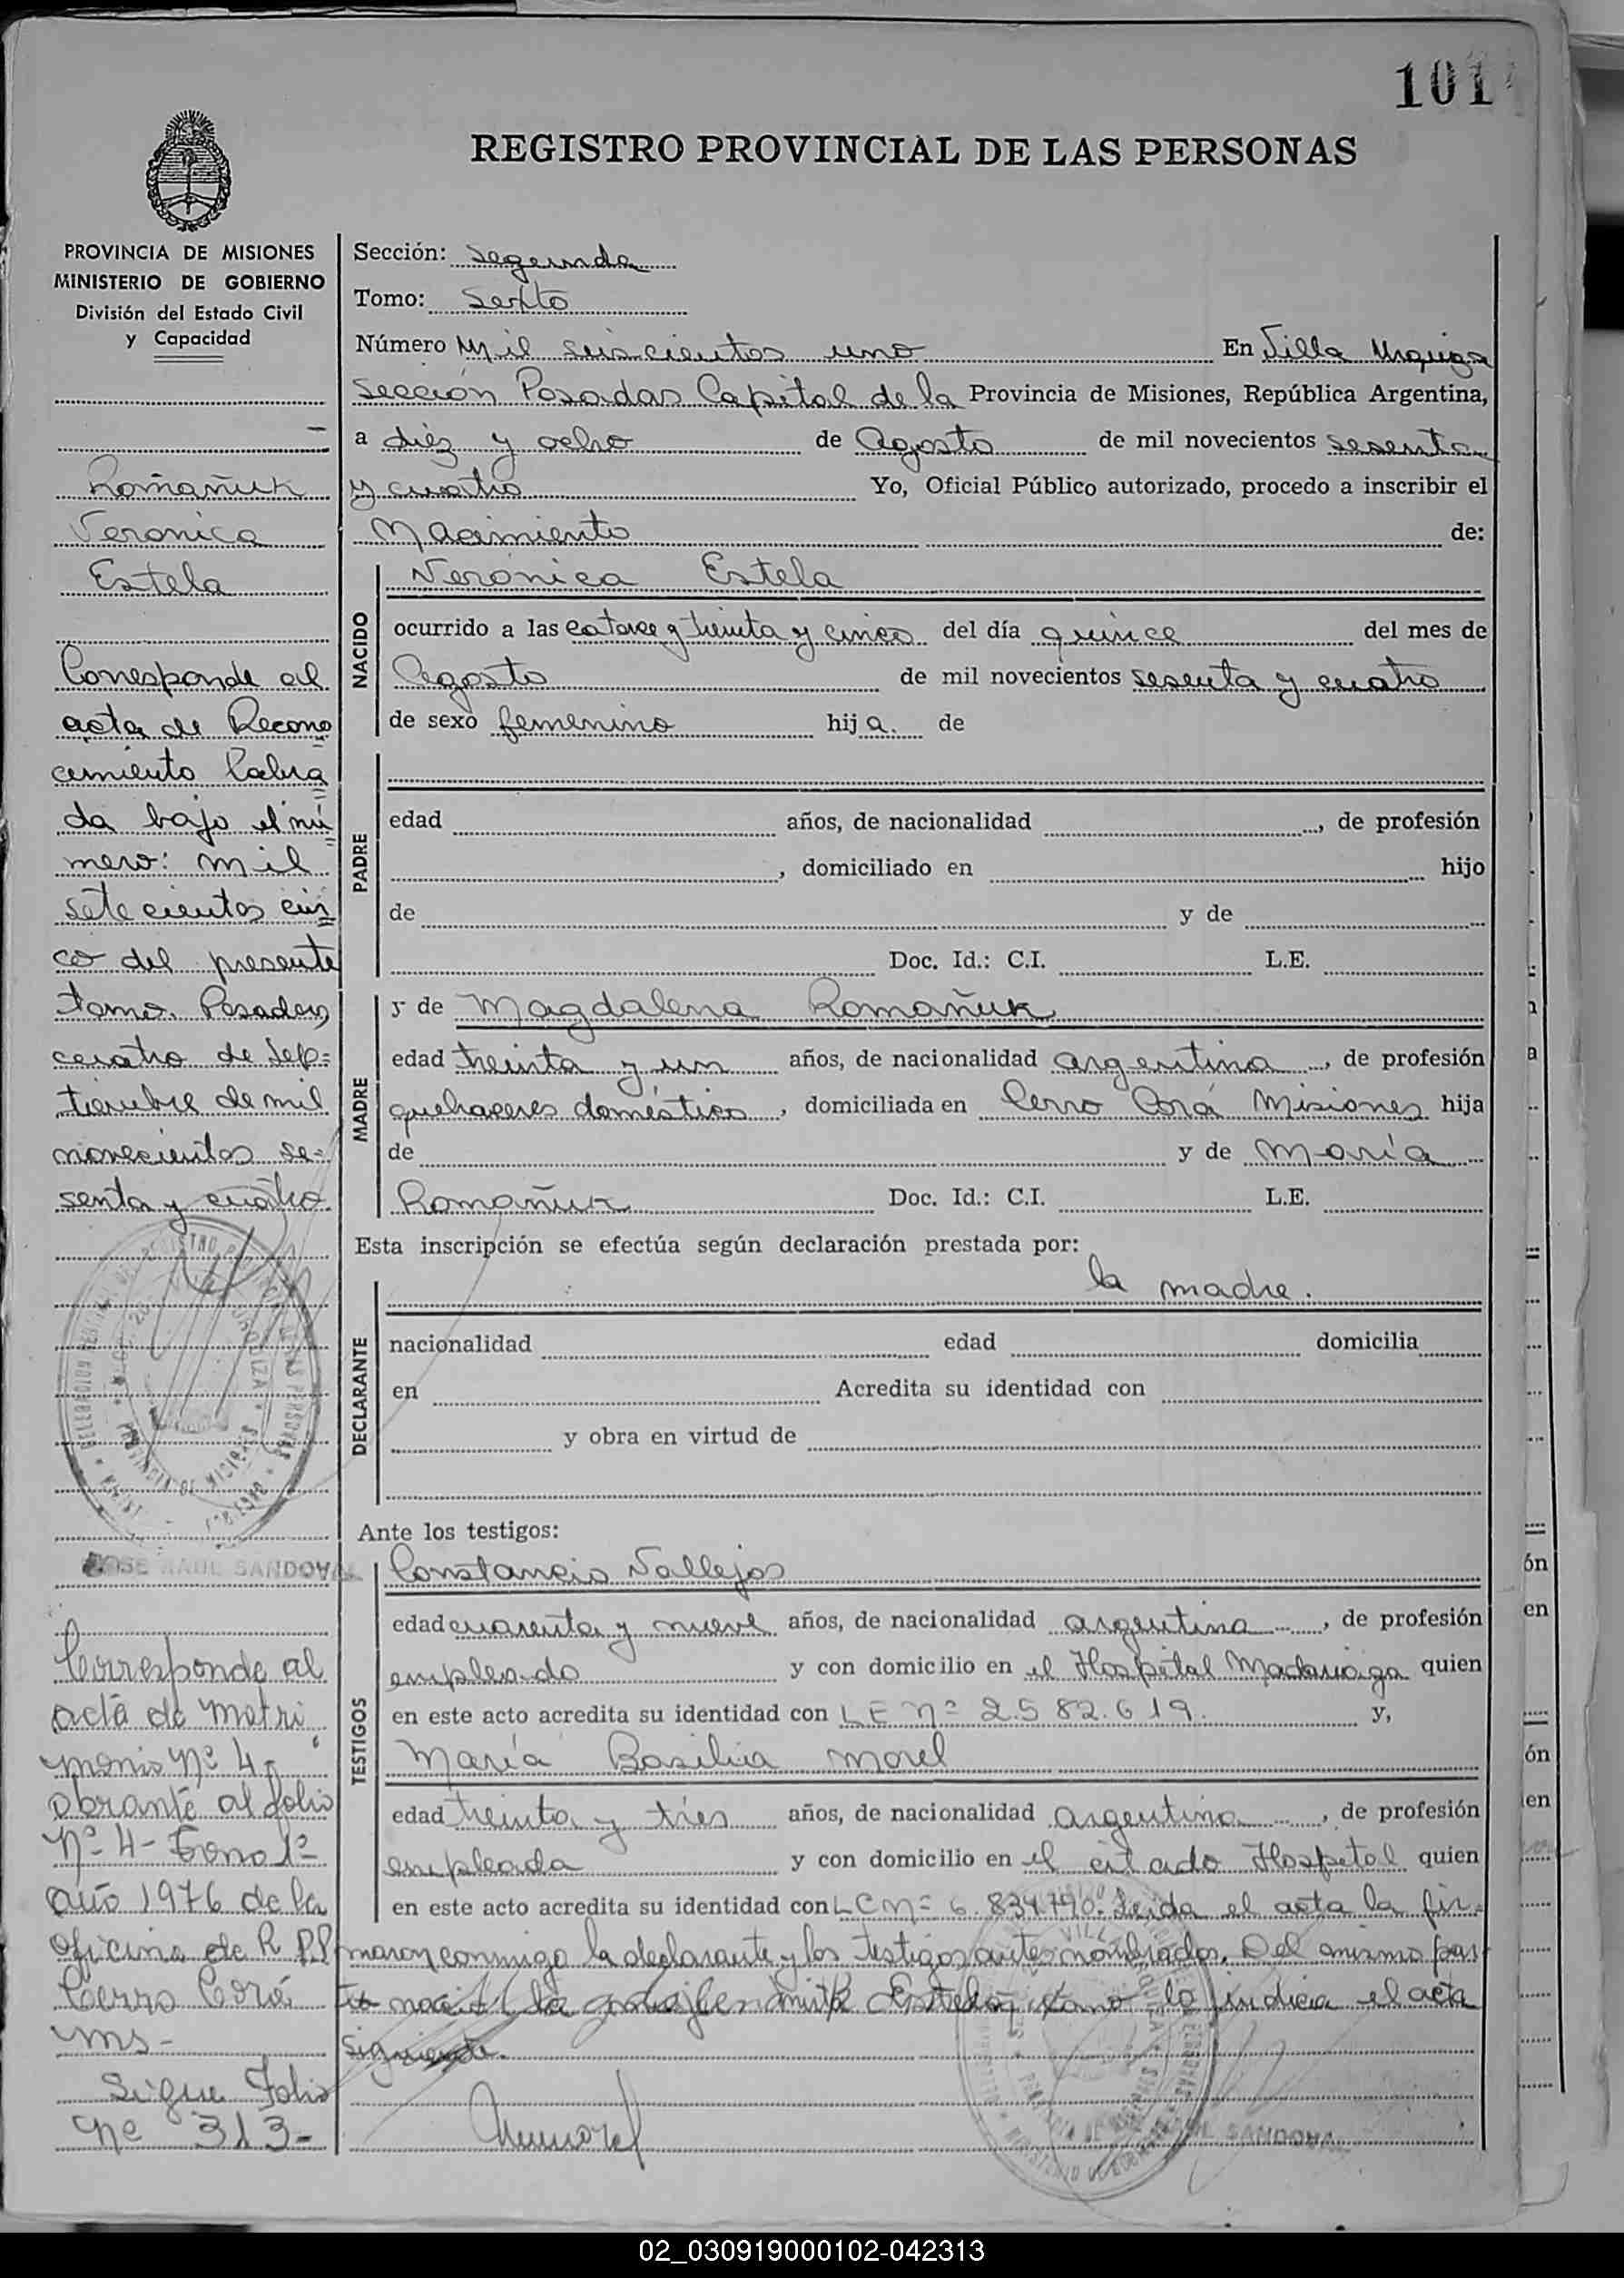 101
REGISTRO PROVINCIAL DE LAS PERSONAS
PROVINCIA DE MISIONES
MINISTERIO DE GOBIERNO
División del Estado Civil
y Capacidad
Romañuk
Veronica
Estela
Corresponde al
acta de Recono
cimiento labra
da bajo el nú
mero: mil
setecientos cin
co del presente
tomo. Posadas,
cuatro de Sep-
tiembre de mil
novecientos se-
senta y cuatro
JOSE RAUL SANDOVAL
Corresponde al
acta de matri
monio Nº 4-
obrante al folio
Nº 4- Tomo 1º
año 1976 de la
Oficina de R.P.P
Cerro Corá
Ms-
Sigue Folio
Nº 313-
Sección: Segunda
Tomo: Sexto
Número Mil seiscientos uno En Villa Urquiza
Sección Posadas Capital de la Provincia de Misiones, República Argentina,
a diez y ocho de Agosto de mil novecientos sesenta
y cuatro Yo, Oficial Público autorizado, procedo a inscribir el
Nacimiento de:
NACIDO
Verónica Estela
ocurrido a las catorce y treinta y cinco del día quince del mes de
Agosto de mil novecientos sesenta y cuatro
de sexo femenino hija. de
PADRE
edad años, de nacionalidad , de profesión
, domiciliado en hijo
de y de
Doc. Id.: C.I. L.E.
MADRE
y de Magdalena Romañuk
edad treinta y un años, de nacionalidad argentina, de profesión
quehaceres domésticos, domiciliada en Cerro Corá Misiones hija
de y de María
Romañuk Doc. Id.: C.I. L.E.
Esta inscripción se efectúa según declaración prestada por:
DECLARANTE
la madre.
nacionalidad edad domicilia
en Acredita su identidad con
y obra en virtud de
Ante los testigos:
TESTIGOS
Constancio Vallejos
edad cuarenta y nueve años, de nacionalidad argentina, de profesión
empleado y con domicilio en el Hospital Madariaga quien
en este acto acredita su identidad con L E Nº 2.582.619. y,
María Basilia Morel
edad treinta y tres años, de nacionalidad argentina, de profesión
empleada y con domicilio en el citado Hospital quien
en este acto acredita su identidad con L C Nº 6.834.790. Leida el acta la fir-
maron conmigo la declarante y los testigos antes nombrados. Del mismo par-
to nació la Estela, como lo indica el acta
siguiente.
SANDOVAL
02_030919000102-042313